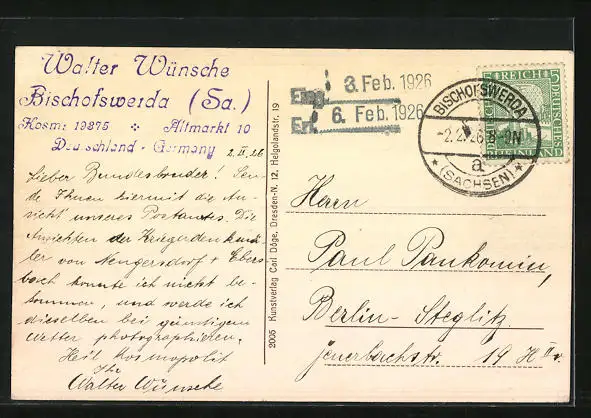 Walter Wünsche
Bischofswerda (Sa.)
Kosm: 19275 Altmarkt 10
Deutschland - Germany
2.II.26
Lieber Bundesbruder! Sen-
de Ihnen hiermit die An-
sicht unseres Postamtes. Die
Ansichten der Kriegerdenkmä-
ler von Neugersdorf + Ebers-
bach konnte ich nicht be-
kommen, und werde ich
dieselben bei günstigem
Wetter photographieren.
Heil Kosmopolit
Ihr
Walter Wünsche
2005 Kunstverlag Carl Döge, Dresden-N. 12, Helgolandstr. 19
Eing. 3. Feb. 1926
Erl. 6. Feb. 1926
BISCHOFSWERDA
-2.2.26.8-9N
a
*(SACHSEN)*
5 REICH 5
DEUTSCHES
Herrn
Paul Pankonin,
Berlin-Steglitz.
Feuerbachstr. 19 H II r.